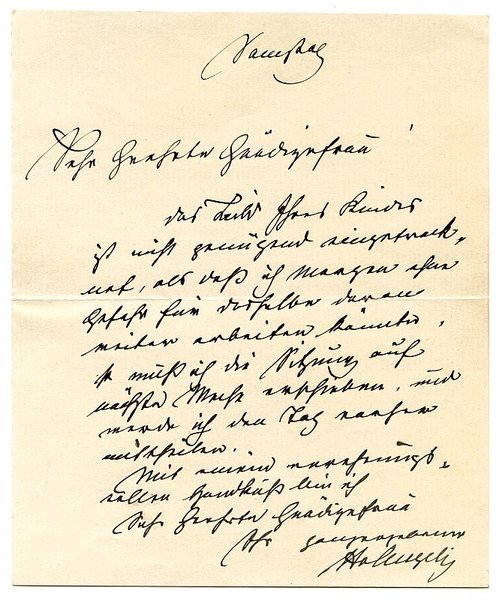 Samstag
Sehr Geehrte Gnädigefrau!
das Bild Ihres Kindes
ist nicht genügend eingetrock-
net, als daß ich morgen ohne
Gefahr für dasselbe daran
weiter arbeiten könnte,
so muß ich die Sitzung auf
nächste Woche verschieben, und
werde ich den Tag vorher
mittheilen.
Mit einem verehrungs-
vollen Handkuß bin ich
Sehr Geehrte Gnädigefrau
Ihr ganzergebener